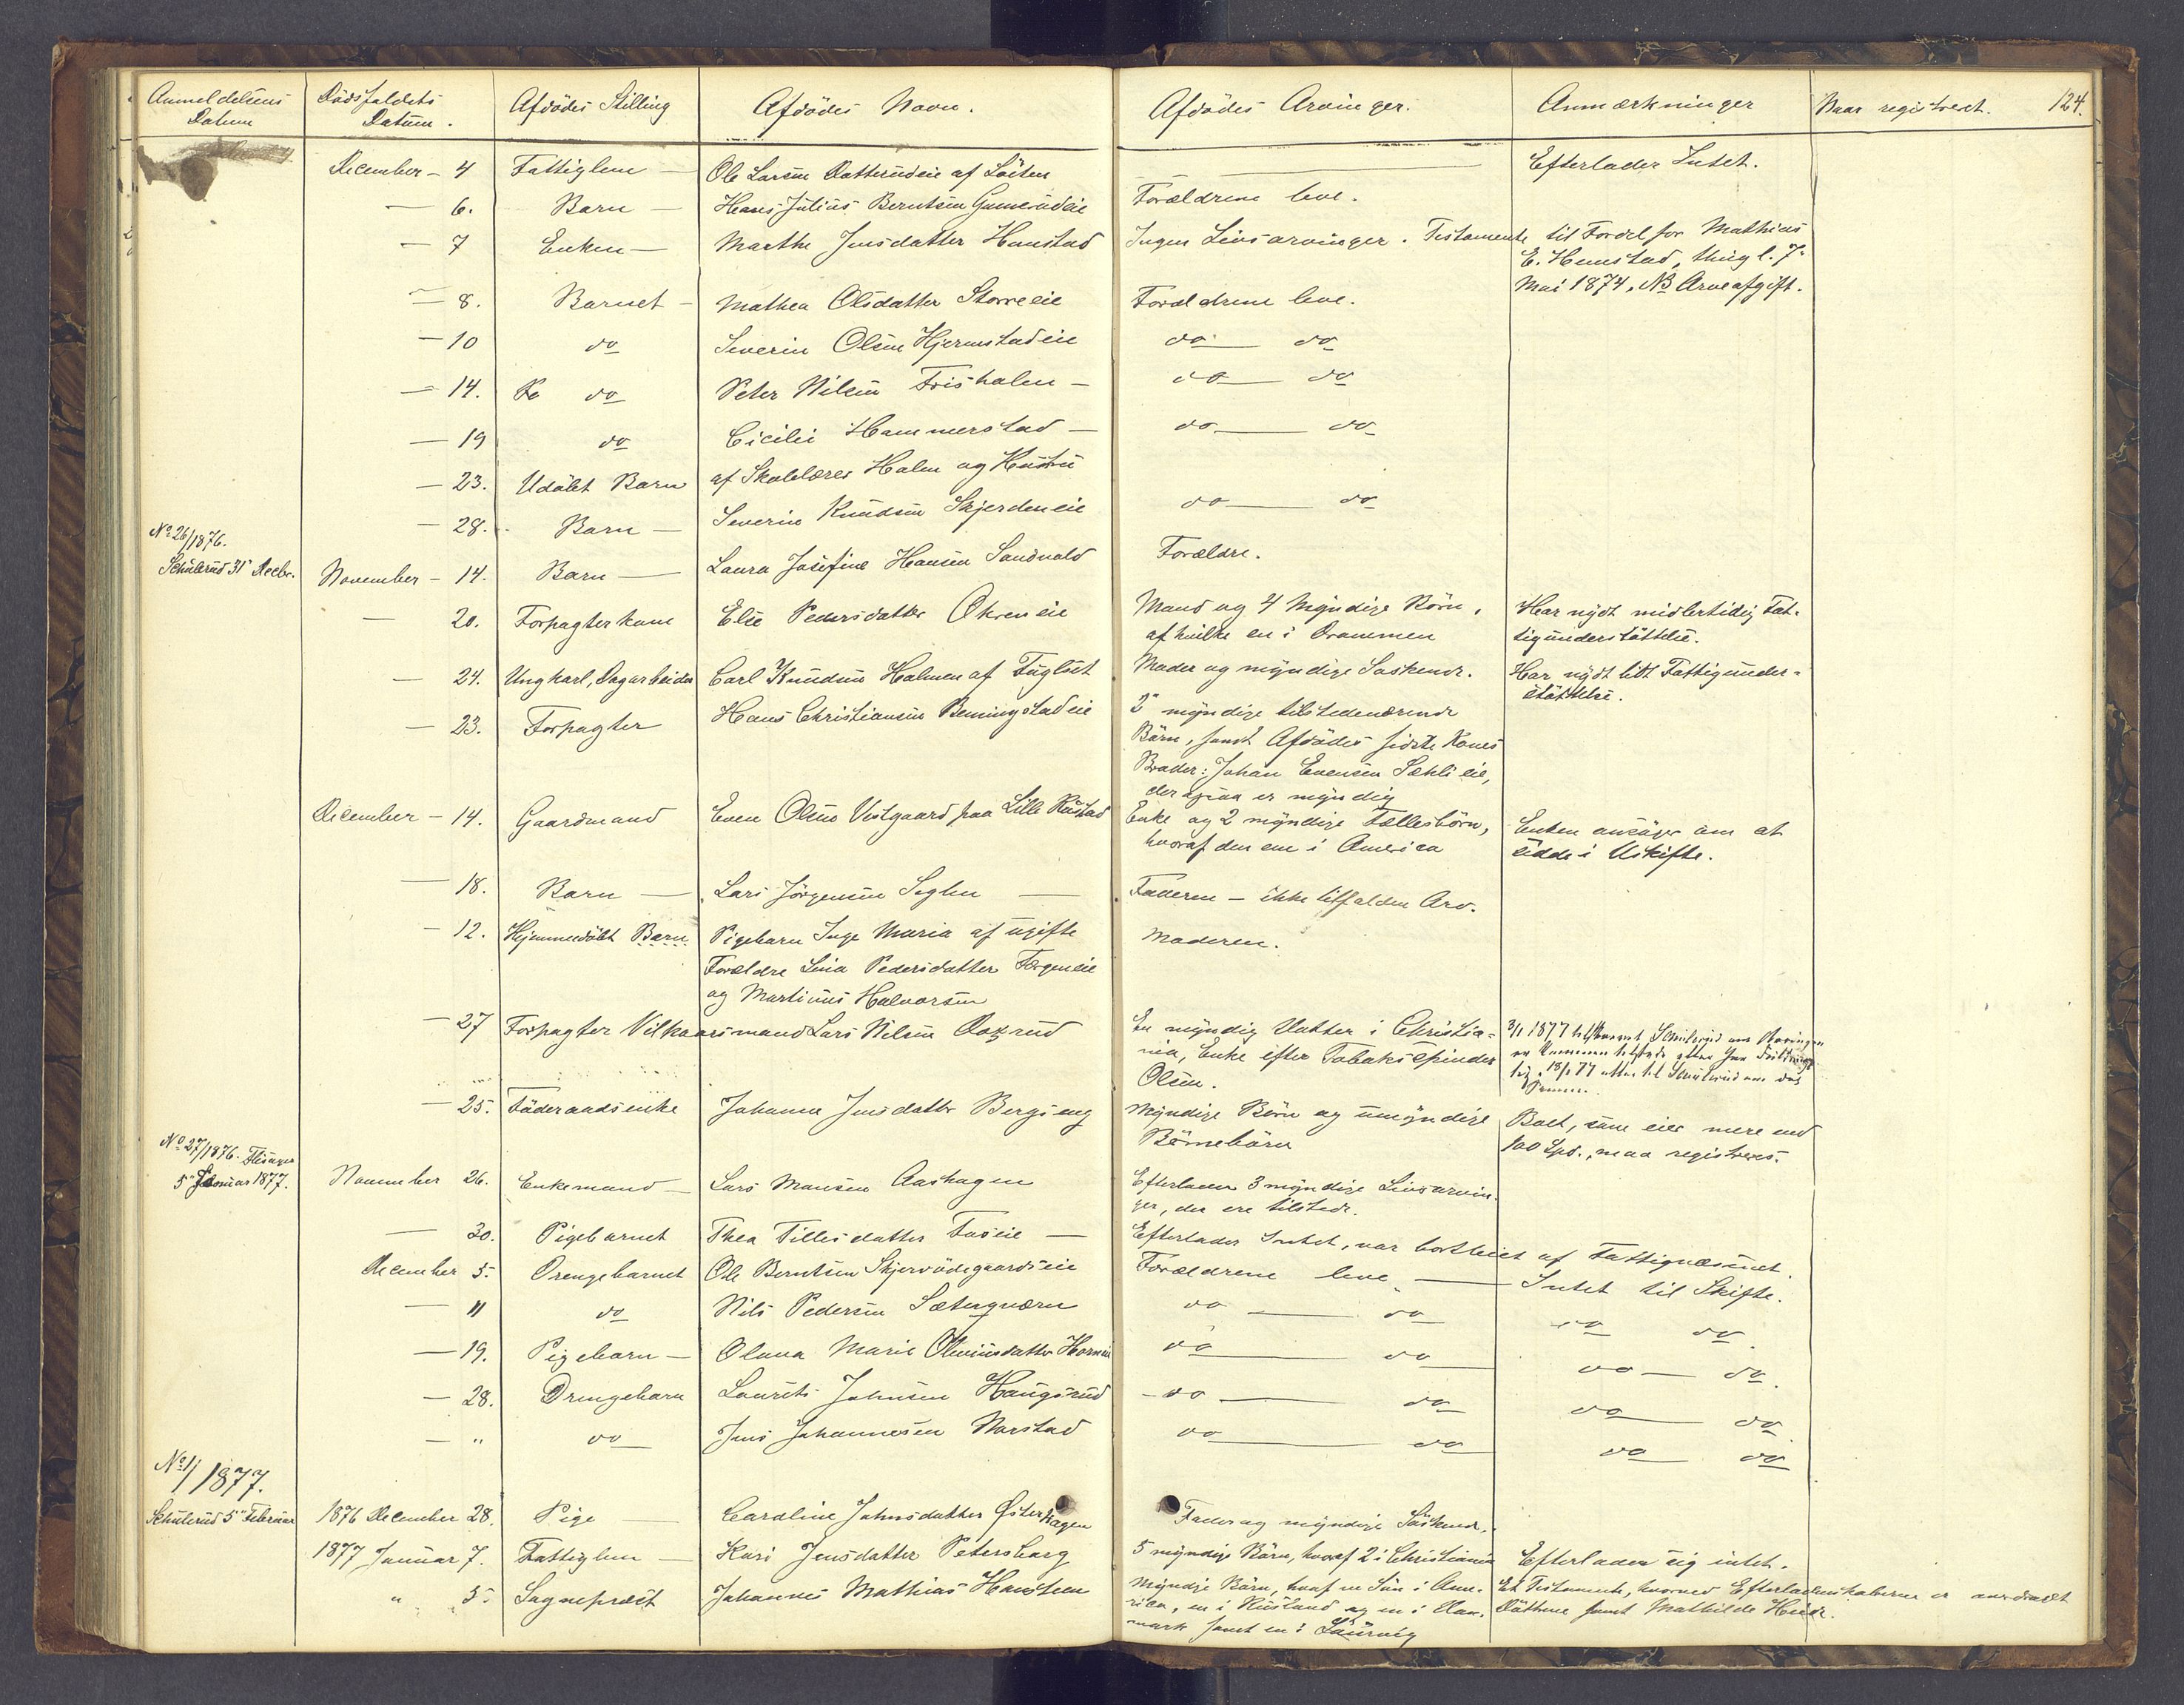 Anmeldelsens Datum | Dødsfaldets Datum. | Afdödes Stilling | Afdödes Navn. | Afdödes Arvinger. | Anmærkninger | Naar registreret. | 124.
December - 4 | Fattiglem — | Ole Larsen Ratterudeie af Löiten | — | Efterlader Intet.
— 6. | Barn — | Hans Julius Berntsen | Forældrene leve.
— 7 | Enken — | Marthe Jensdatter Hemstad | Ingen Livsarvinger. Testamente til Fordel for Mathias
E. Hemstad, thingl. 7"
Mai 1874. NB Arveafgift.
— 8. | Barnet - | Mathea Olsdatter Storreeie | Forældrene leve.
— 10 | do | Severin Olsen Hjermstadeie | do — do
— 14. | do | Peter Nilsen Frisholen — | do — do
— 19 | do | Cicilie Hammerstad — | do — do
— 23. | Udöbt Barn | af Skolelærer Holen og Hustru
— 28. | Barn — | Severin Knudsen Skjerdeneie | do — do
No 26/1876.
Schulerud 31" Decbr. | November - 14. | Barn — | Laura Josefine Hansen Sandvold | Forældre.
— 20. | Forpagterkone | Elie Pedersdatter Økreneie | Mand og 4 Myndige Börn, | Har nydt midlertidig Fat-
af hvilke en i Drammen | tigunderstöttelse.
— 24. | Ungkarl, Dagarbeider | Carl Knudsen Holmen af Fuglset | Moder og myndige Söskende. | Har nydt lidt Fattigunder-
stöttelse.
— 23. | Forpagter | Hans Christiansen Benningstadeie | 2" myndige tilstedeværende
Börn, samt Afdödes sidste Kones
Broder: Johan Evensen Sæhlieie,
der ogsaa er myndig
December - 14. | Gaardmand | Even Olsen Vestgaard paa Lille Rustad | Enke og 2 myndige Fællesbörn, | Enken ansöger om at
hvoraf den ene i America | sidde i Uskifte.
— 18. | Barn — | Lars Jörgensen Seglen — | Faderen - ikke tilfalden Arv.
— 12. | Hjemmedöbt Barn | Pigebarn Inge Maria af ugifte | Moderen.
Forældre Lina Pedersdatter Færgeneie
og Martinus Halvorsen
— 27 | Forpagter Vilkaarsmand Lars Nilsen Dogrud | En myndig Datter i Christia- | 3/1 1877 Schulerud om
nia, Enke efter Tobakspinder
Olsen. | 18/1 77 atter til Schulerud om
— 25. | Föderaadsenke | Johanne Jensdatter Bergseng | Myndige Börn og umyndige | Boet, som eier mere end
Börnebörn | 100 Spd., maa registreres.
No 27/1876.
5" Januar 1877. | November 26. | Enkemand — | Lars Monsen Aashagen | Efterlader 3 myndige Livsarvin-
ger, der ere tilstede.
— 30. | Pigebarnet | Thea Tillesdatter Faseie — | Efterlader Intet, var bortleiet af Fattigvæsenet.
December 5. | Drengebarnet | Ole Berntsen Skjervödegaardseie | Forældrene leve — | Intet til Skifte.
— 11 | do | Nils Pedersen Sæterqværn | do — do | do do.
— 19. | Pigebarn — | Oluva Marie Oliviusdatter Horneie | do — do | do — do.
— 28. | Drengebarn | Laurits Johnsen Haugsrud | do — do | do — do
— " | do | Jens Johannesen Narstad | do — do | do do
No 1/1877.
Schulerud 5" Februar | 1876 December 28. | Pige — | Caroline Johnsdatter Østerhagen | Fader og myndige Söskend.
1877 Januar 7. | Fattiglem — | Kari Jensdatter Petersborg | 5 myndige Börn, hvoraf 2 i Christiania | Efterlader sig intet.
" 5. | Sognepræst | Johannes Mathias Hansteen | Myndige Börn, hvoraf en Sön i Ame- | Et Testamente, hvorved Efterladenskaberne er anordnet
rika, en i Rusland og en i Dan- | Döttrene samt Mathilde
mark samt en i Laurvig